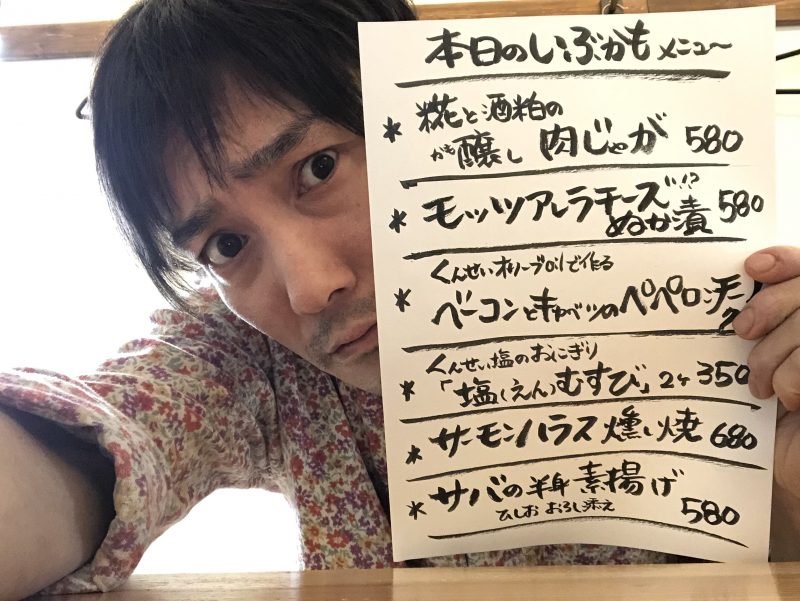 本日のいぶかもメニュー
* 糀と酒粕の
かも醸し 肉じゃが 580
* モッツアレラチーズ!?
ぬか漬 580
くんせいオリーブoilで作る
* ベーコンとキャベツのペペロンチー
くんせい塩のおにぎり
* 「塩(えん)むすび」2ケ 350
* サーモンハラス燻し焼 680
* サバの半身 素揚げ
ひしお おろし添え 580